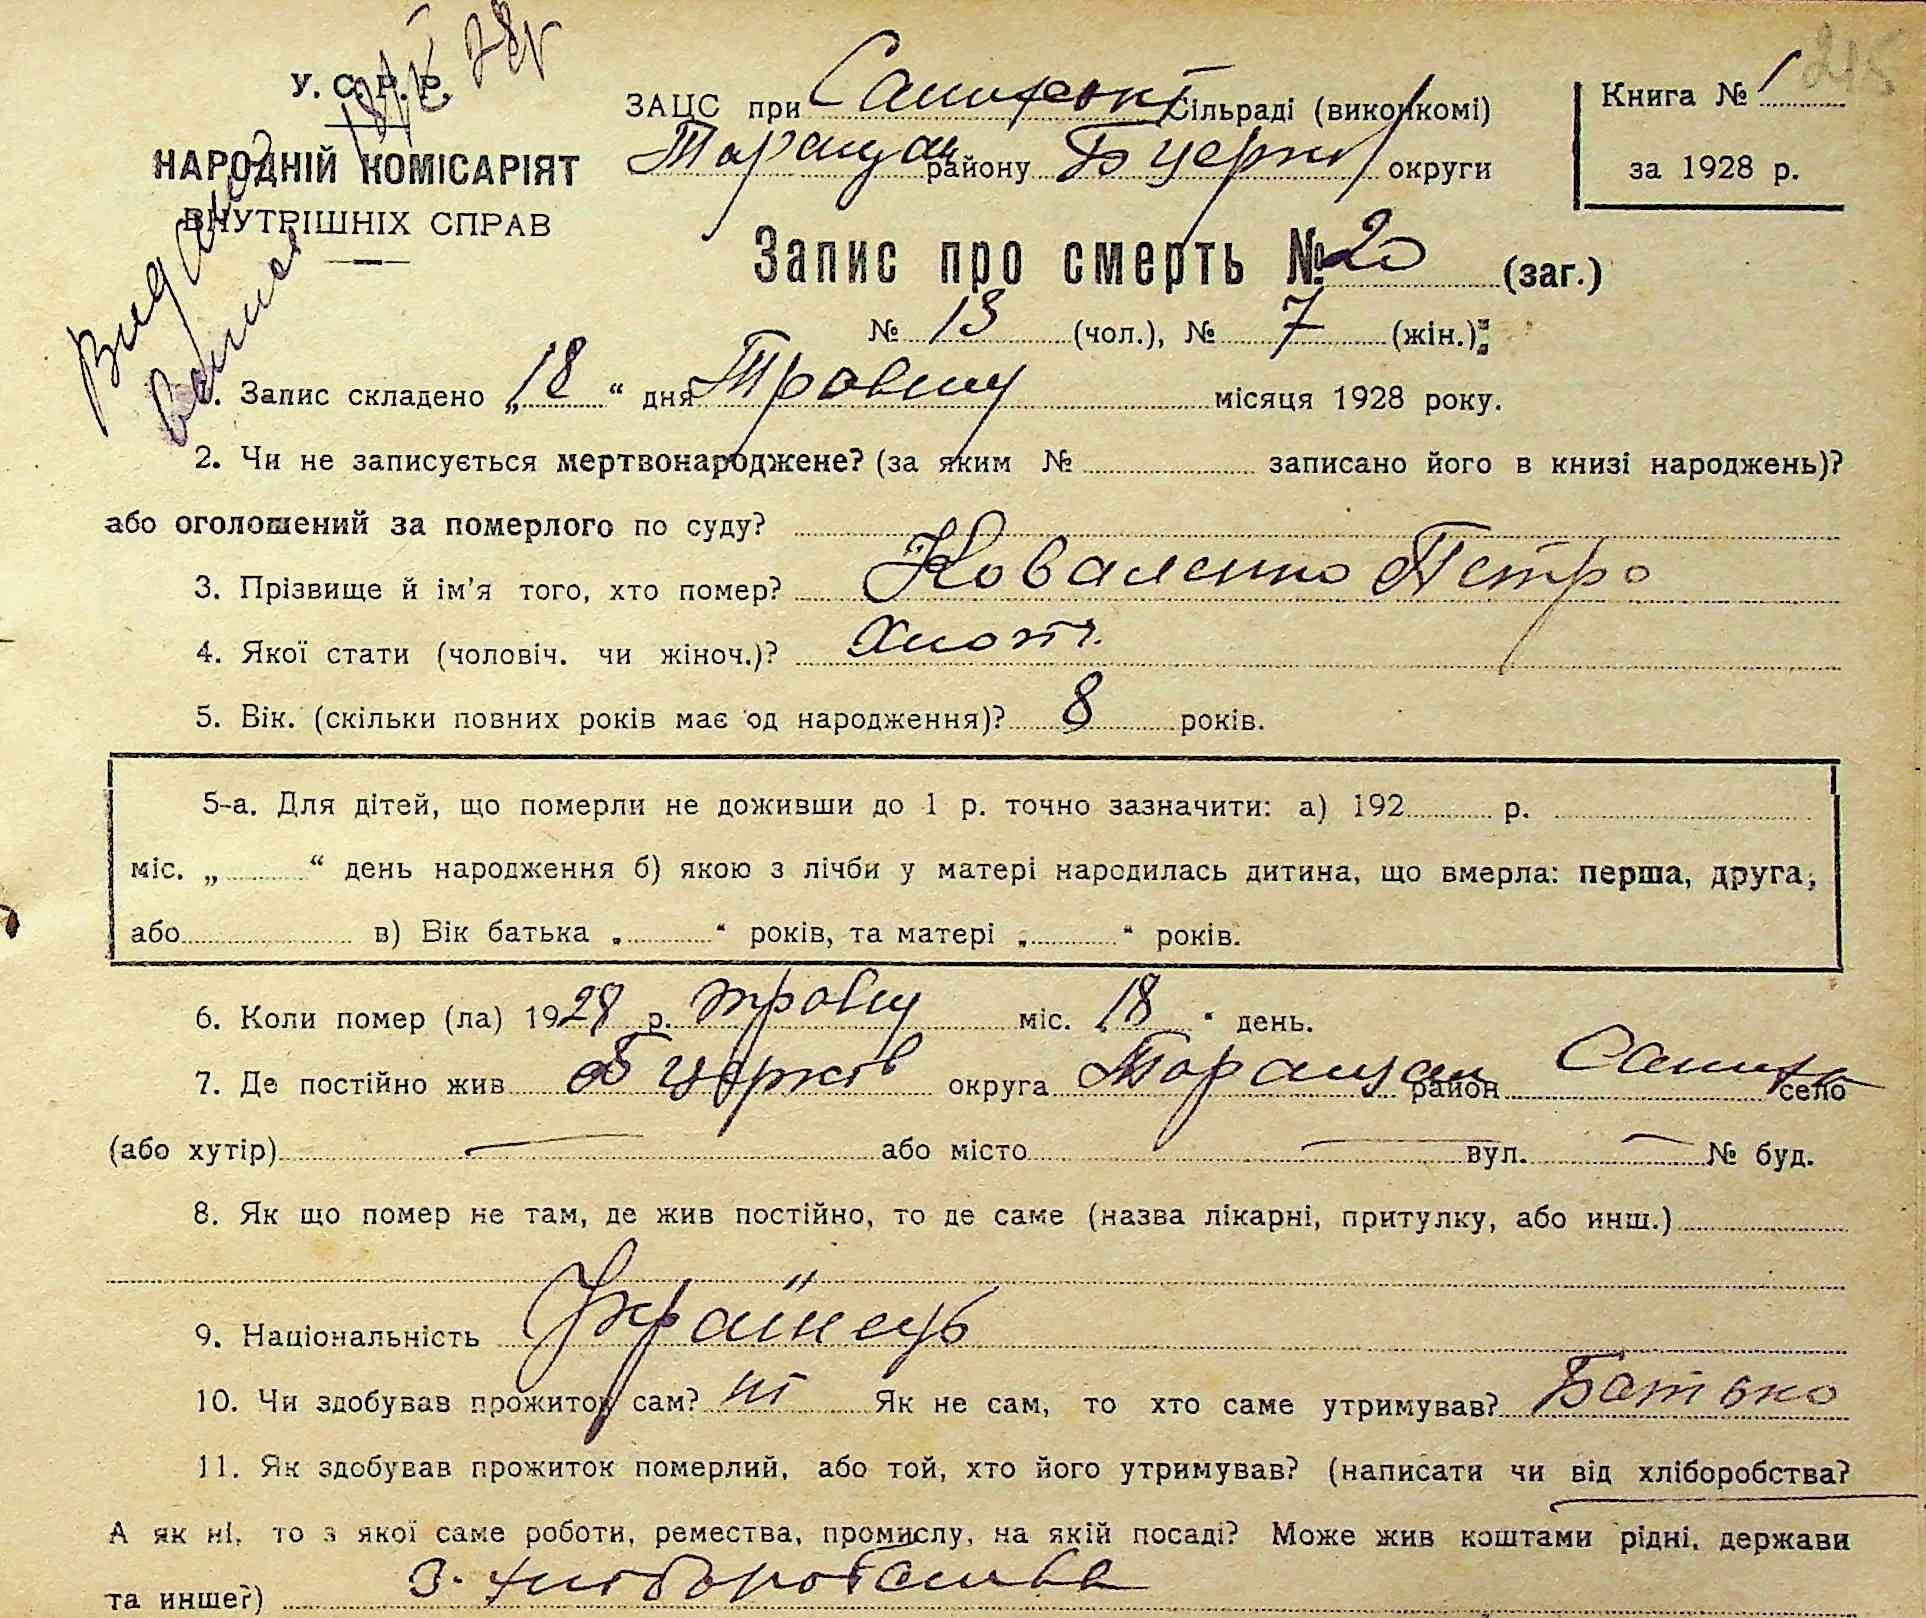 215
У. С. Р. Р.
НАРОДНІЙ КОМІСАРІЯТ
ВНУТРІШНІХ СПРАВ
Видано
ЗАЦС при сільраді (виконкомі)
Таращан району Б Церків округи
Книга № 1
за 1928 р.
Запис про смерть № 20 (заг.)
№ 13 (чол.), № 7 (жін.)
1. Запис складено „18“ дня Травня місяця 1928 року.
2. Чи не записується мертвонароджене? (за яким № записано його в книзі народжень)?
або оголошений за померлого по суду?
3. Прізвище й ім'я того, хто помер? Коваленко Петро
4. Якої стати (чоловіч. чи жіноч.)? Хлопч.
5. Вік. (скільки повних років має од народження)? 8 років.
5-а. Для дітей, що померли не доживши до 1 р. точно зазначити: а) 192 р.
міс. „ “ день народження б) якою з лічби у матері народилась дитина, що вмерла: перша, друга,
або в) Вік батька „ “ років, та матері „ “ років.
6. Коли помер (ла) 1928 р. травня міс. „18“ день.
7. Де постійно жив Б Церків округа Таращан район село
(або хутір) — або місто — вул. — № буд.
8. Як що помер не там, де жив постійно, то де саме (назва лікарні, притулку, або инш.)
9. Національність Українець
10. Чи здобував прожиток сам? ні Як не сам, то хто саме утримував? Батько
11. Як здобував прожиток померлий, або той, хто його утримував? (написати чи від хліборобства?
А як ні, то з якої саме роботи, ремества, промислу, на якій посаді? Може жив коштами рідні, держави
та инше?) З хліборобства